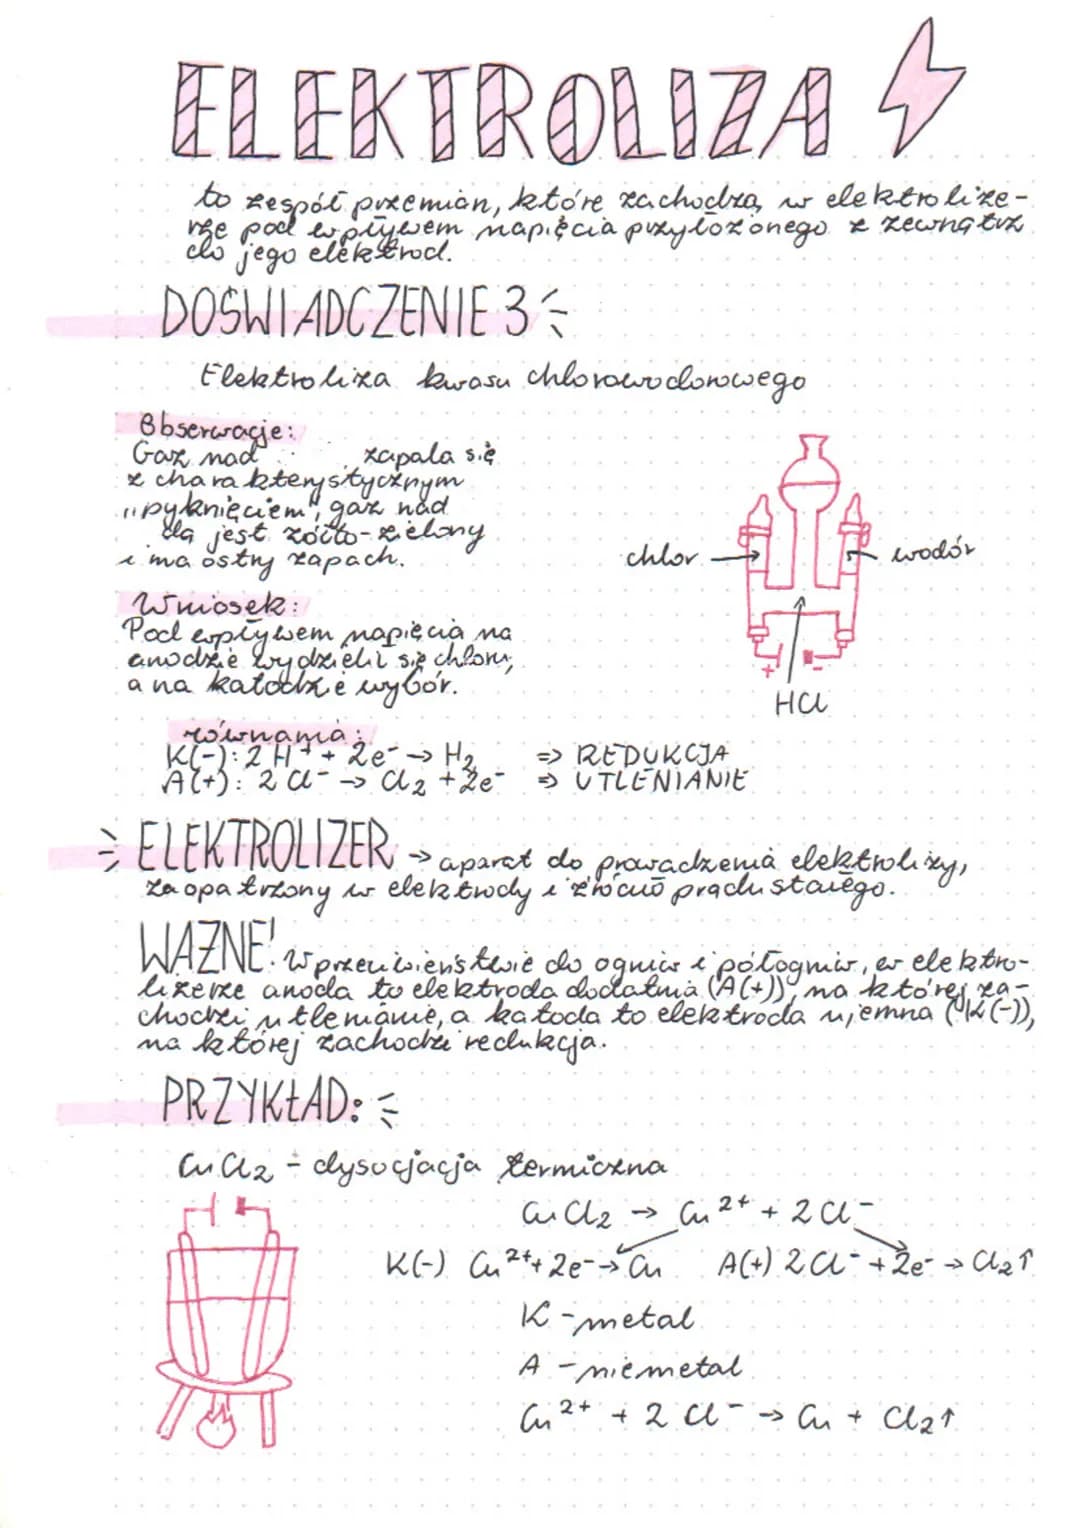 ELEKTROLIZA
to zespół przemian, które zachodzą w elektrolize-
rze pod wpływem napięcia przyłożonego z zewnątrz
do jego elektrod.
DOŚWIADCZENIE 3
Elektroliza kwasu chlorowodorowego
Obserwacje:
Gaz nad zapala się
z charakterystycznym
"pyknięciem", gaz nad
dą jest żółto-zielony
i ma ostry zapach.
Wniosek:
Pod wpływem napięcia na
anodzie wydzielił się chlor,
a na katodzie wybór.
chlor
wodór
+ -
HCl
równania:
K(-): 2 H⁺ + 2e⁻ → H₂ => REDUKCJA
A(+): 2 Cl⁻ → Cl₂ + 2e⁻ => UTLENIANIE
ELEKTROLIZER → aparat do prowadzenia elektrolizy,
zaopatrzony w elektrody i źródło prądu stałego.
WAŻNE! W przeciwieństwie do ogniw i półogniw, w elektro-
lizerze anoda to elektroda dodatnia (A(+)), na której za-
chodzi utlenianie, a katoda to elektroda ujemna (K(-)),
na której zachodzi redukcja.
PRZYKŁAD:
CuCl₂ - dysocjacja termiczna
CuCl₂ → Cu²⁺ + 2Cl⁻
K(-) Cu²⁺ + 2e⁻ → Cu A(+) 2Cl⁻ + 2e⁻ → Cl₂↑
K - metal
A - niemetal
Cu²⁺ + 2 Cl⁻ → Cu + Cl₂↑